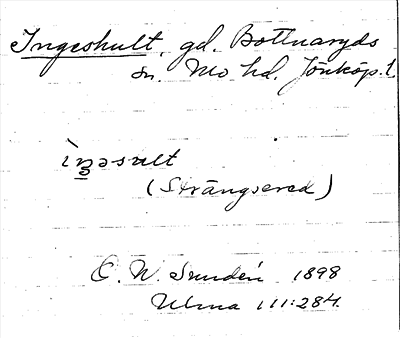 Ingeshult, gd. Bottnaryds
sn. Mo hd, Jönköp. l.
ìŋəsult
(Strängsered)
C. W. Sundén 1898
Ulma 111:284.